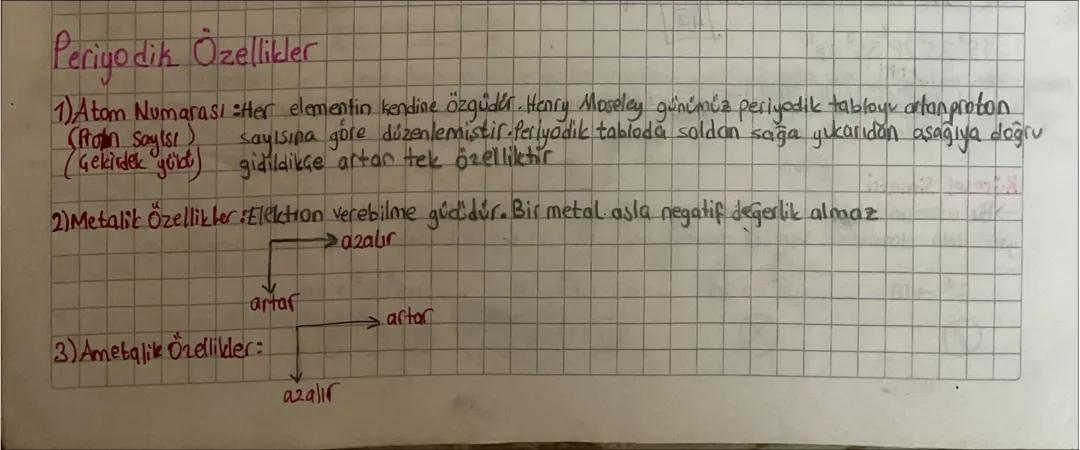 Periyodik Özellikler
1) Atom Numarası : Her elementin kendine özgüdür. Henry Moseley günümüz periyodik tabloyu artan proton
(Proton sayısı) sayısına göre düzenlemiştir. Periyodik tabloda soldan sağa yukarıdan aşağıya doğru
(Çekirdek yükü) gidildikçe artan tek özelliktir
2) Metalik Özellikler : Elektron verebilme gücüdür. Bir metal asla negatif değerlik almaz
azalır
artar
artar
3) Ametalik Özellikler :
azalır